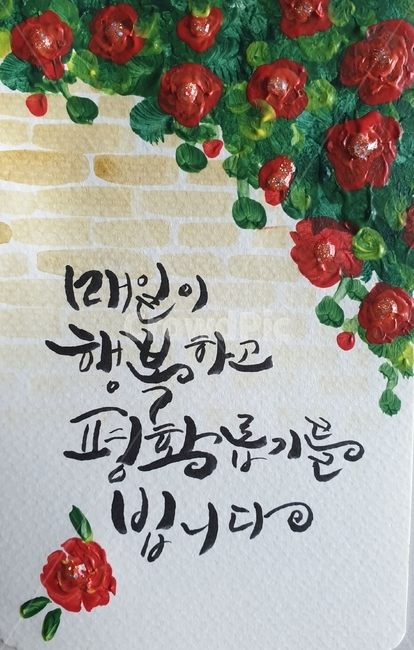 매일이
행복하고
평화롭기를
빕니다
CrowdPic